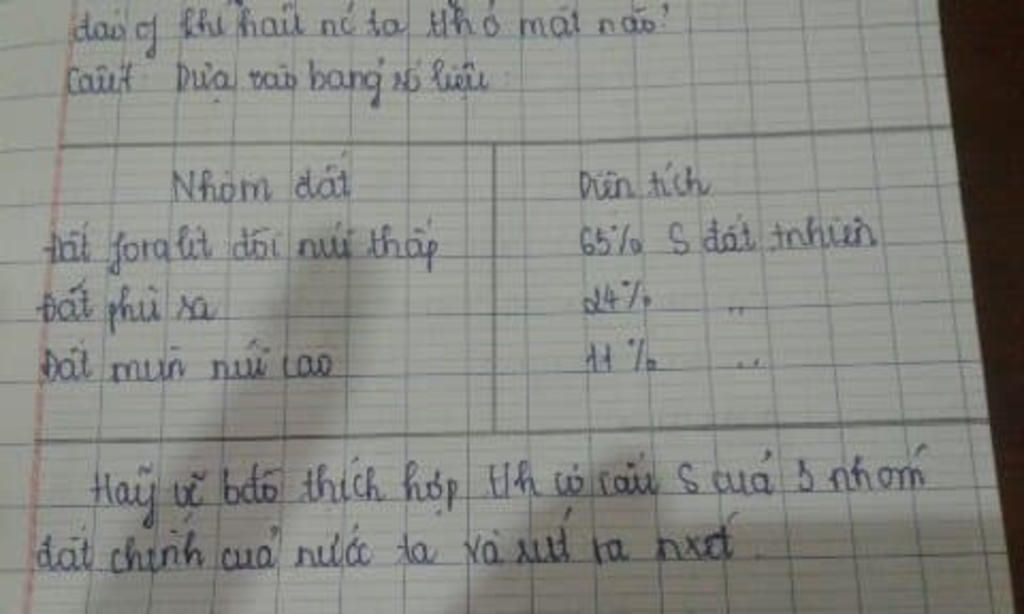 khí hậu nc ta thể mặt nào?
Dựa vào bảng số liệu
Nhóm đất Diện tích
Đất feralit đồi núi thấp 65% S đất tnhiên
Đất phù sa 24% "
Đất mùn núi cao 11% "
Hãy vẽ bđồ thích hợp cơ cấu S của 3 nhóm
đất chính của nước ta và rút ra nxét